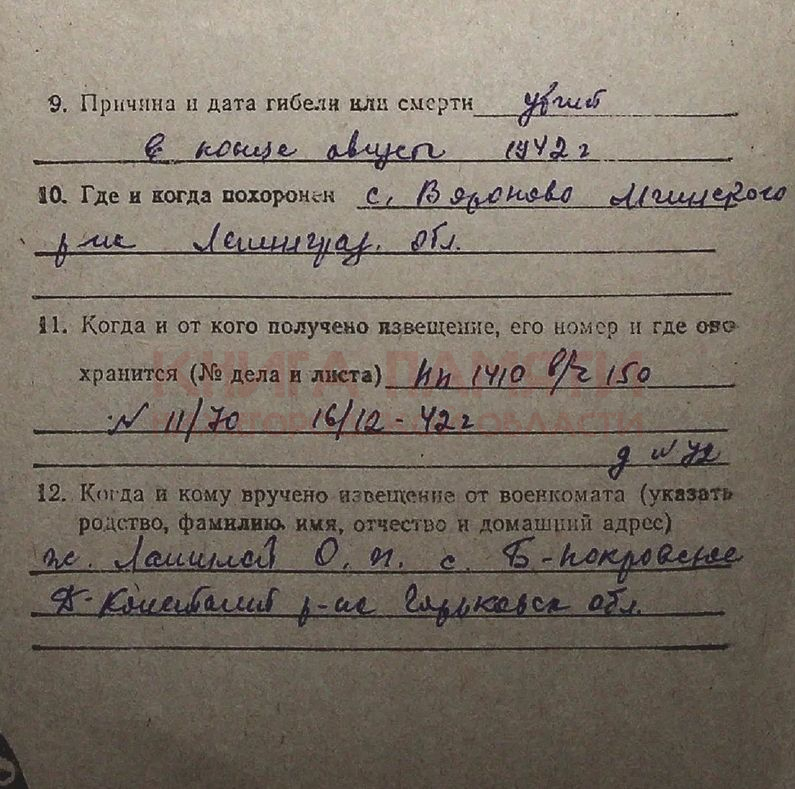 9. Причина и дата гибели или смерти убит
в конце август 1942 г
10. Где и когда похоронен с. Вороново Мгинского
р-на Ленинград. обл.
11. Когда и от кого получено извещение, его номер и где оно
хранится (№ дела и листа) пп 1410 в/ч 150
КНИГА ПАМЯТИ
№ 11/70 16/12 - 42 г
НИЖЕГОРОДСКОЙ ОБЛАСТИ
д № 72
12. Когда и кому вручено извещение от военкомата (указать
родство, фамилию, имя, отчество и домашний адрес)
ж. О. П. с. Б-Покровское
Д-Констант р-на Горьковск обл.